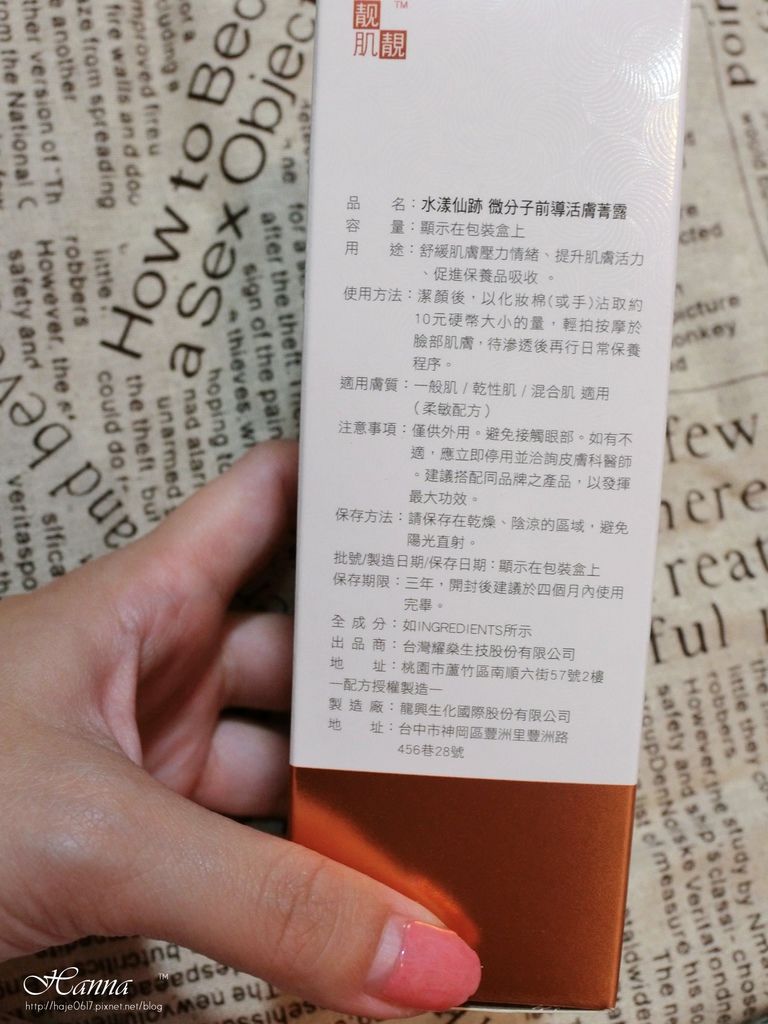 靓 TM
肌 靚
品 名：水漾仙跡 微分子前導活膚菁露
容 量：顯示在包裝盒上
用 途：舒緩肌膚壓力情緒、提升肌膚活力
、促進保養品吸收。
使用方法：潔顏後，以化妝棉(或手)沾取約
10元硬幣大小的量，輕拍按摩於
臉部肌膚，待滲透後再行日常保養
程序。
適用膚質：一般肌 / 乾性肌 / 混合肌 適用
（柔敏配方）
注意事項：僅供外用。避免接觸眼部。如有不
適，應立即停用並洽詢皮膚科醫師
。建議搭配同品牌之產品，以發揮
最大功效。
保存方法：請保存在乾燥、陰涼的區域，避免
陽光直射。
批號/製造日期/保存日期：顯示在包裝盒上
保存期限：三年，開封後建議於四個月內使用
完畢。
全 成 分：如INGREDIENTS所示
出 品 商：台灣耀燊生技股份有限公司
地 址：桃園市蘆竹區南順六街57號2樓
—配方授權製造—
製 造 廠：龍興生化國際股份有限公司
地 址：台中市神岡區豐洲里豐洲路
456巷28號
How to Bec
a Sex Object
or a
cluding a
improved fire
fire walls and
aze from spreading
another
ther version of "Th
m the National C
robbers
However, the
safety and
little
could do
the theft, but
unarmed
and alar
hoping to
thieves wi
sign of the pain
after the theft
for a
and beve
few
here
reat
ful
picture
onkey
cted
little they c
robbers
However, the
safety and ship's class
oupDenNorske Veritafondn
of measure his
the study by Nm
The new
Hanna TM
http://haje0617.pixnet.net/blog